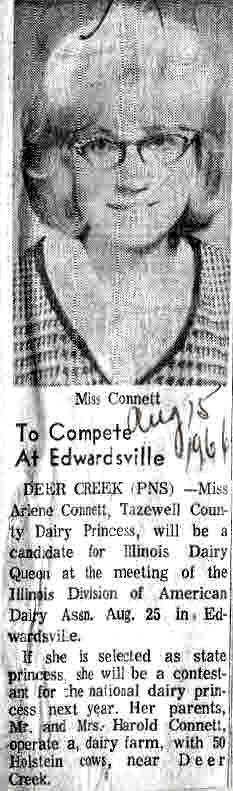 Miss Connett
Aug 15
1966
To Compete
At Edwardsville
DEER CREEK (PNS) —Miss
Arlene Connett, Tazewell Coun-
ty Dairy Princess, will be a
candidate for Illinois Dairy
Queen at the meeting of the
Illinois Division of American
Dairy Assn. Aug. 25 in Ed-
wardsville.
If she is selected as state
princess, she will be a contest-
ant for the national dairy prin-
cess next year. Her parents,
Mr. and Mrs. Harold Connett,
operate a, dairy farm, with 50
Holstein cows, near Deer
Creek.